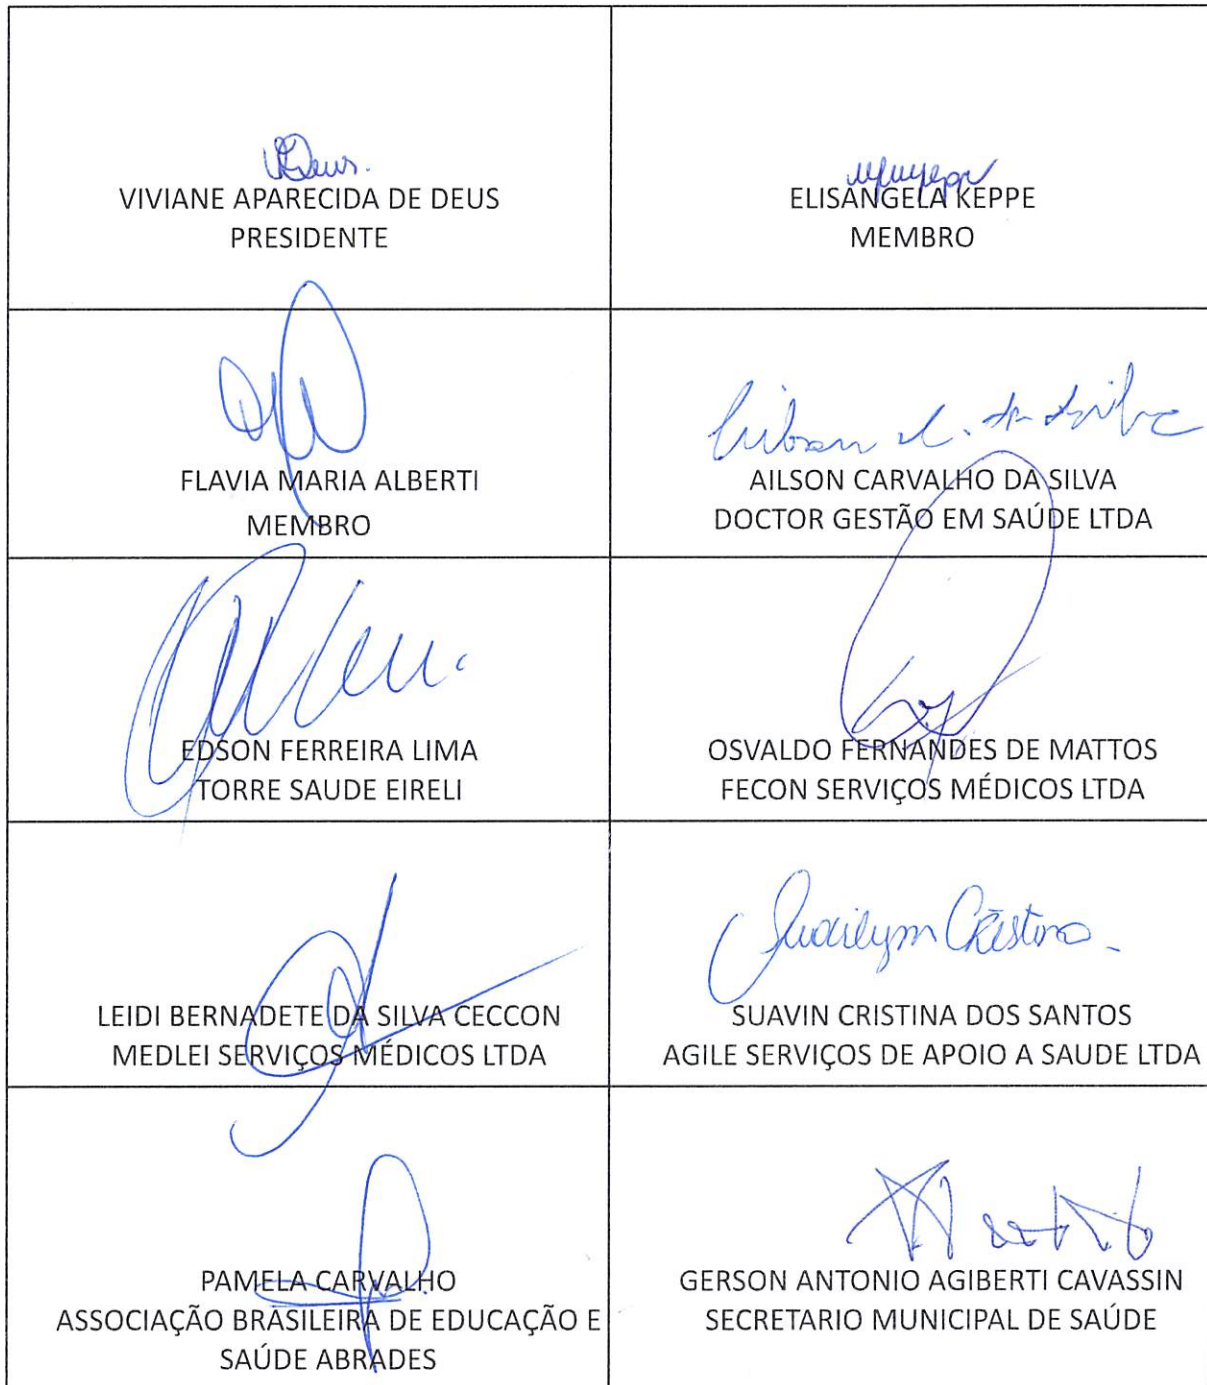 VDeus.
VIVIANE APARECIDA DE DEUS
PRESIDENTE
ELISANGELA KEPPE
MEMBRO
FLAVIA MARIA ALBERTI
MEMBRO
AILSON CARVALHO DA SILVA
DOCTOR GESTÃO EM SAÚDE LTDA
EDSON FERREIRA LIMA
TORRE SAUDE EIRELI
OSVALDO FERNANDES DE MATTOS
FECON SERVIÇOS MÉDICOS LTDA
LEIDI BERNADETE DA SILVA CECCON
MEDLEI SERVIÇOS MÉDICOS LTDA
Cristina
SUAVIN CRISTINA DOS SANTOS
AGILE SERVIÇOS DE APOIO A SAUDE LTDA
PAMELA CARVALHO
ASSOCIAÇÃO BRASILEIRA DE EDUCAÇÃO E
SAÚDE ABRADES
GERSON ANTONIO AGIBERTI CAVASSIN
SECRETARIO MUNICIPAL DE SAÚDE